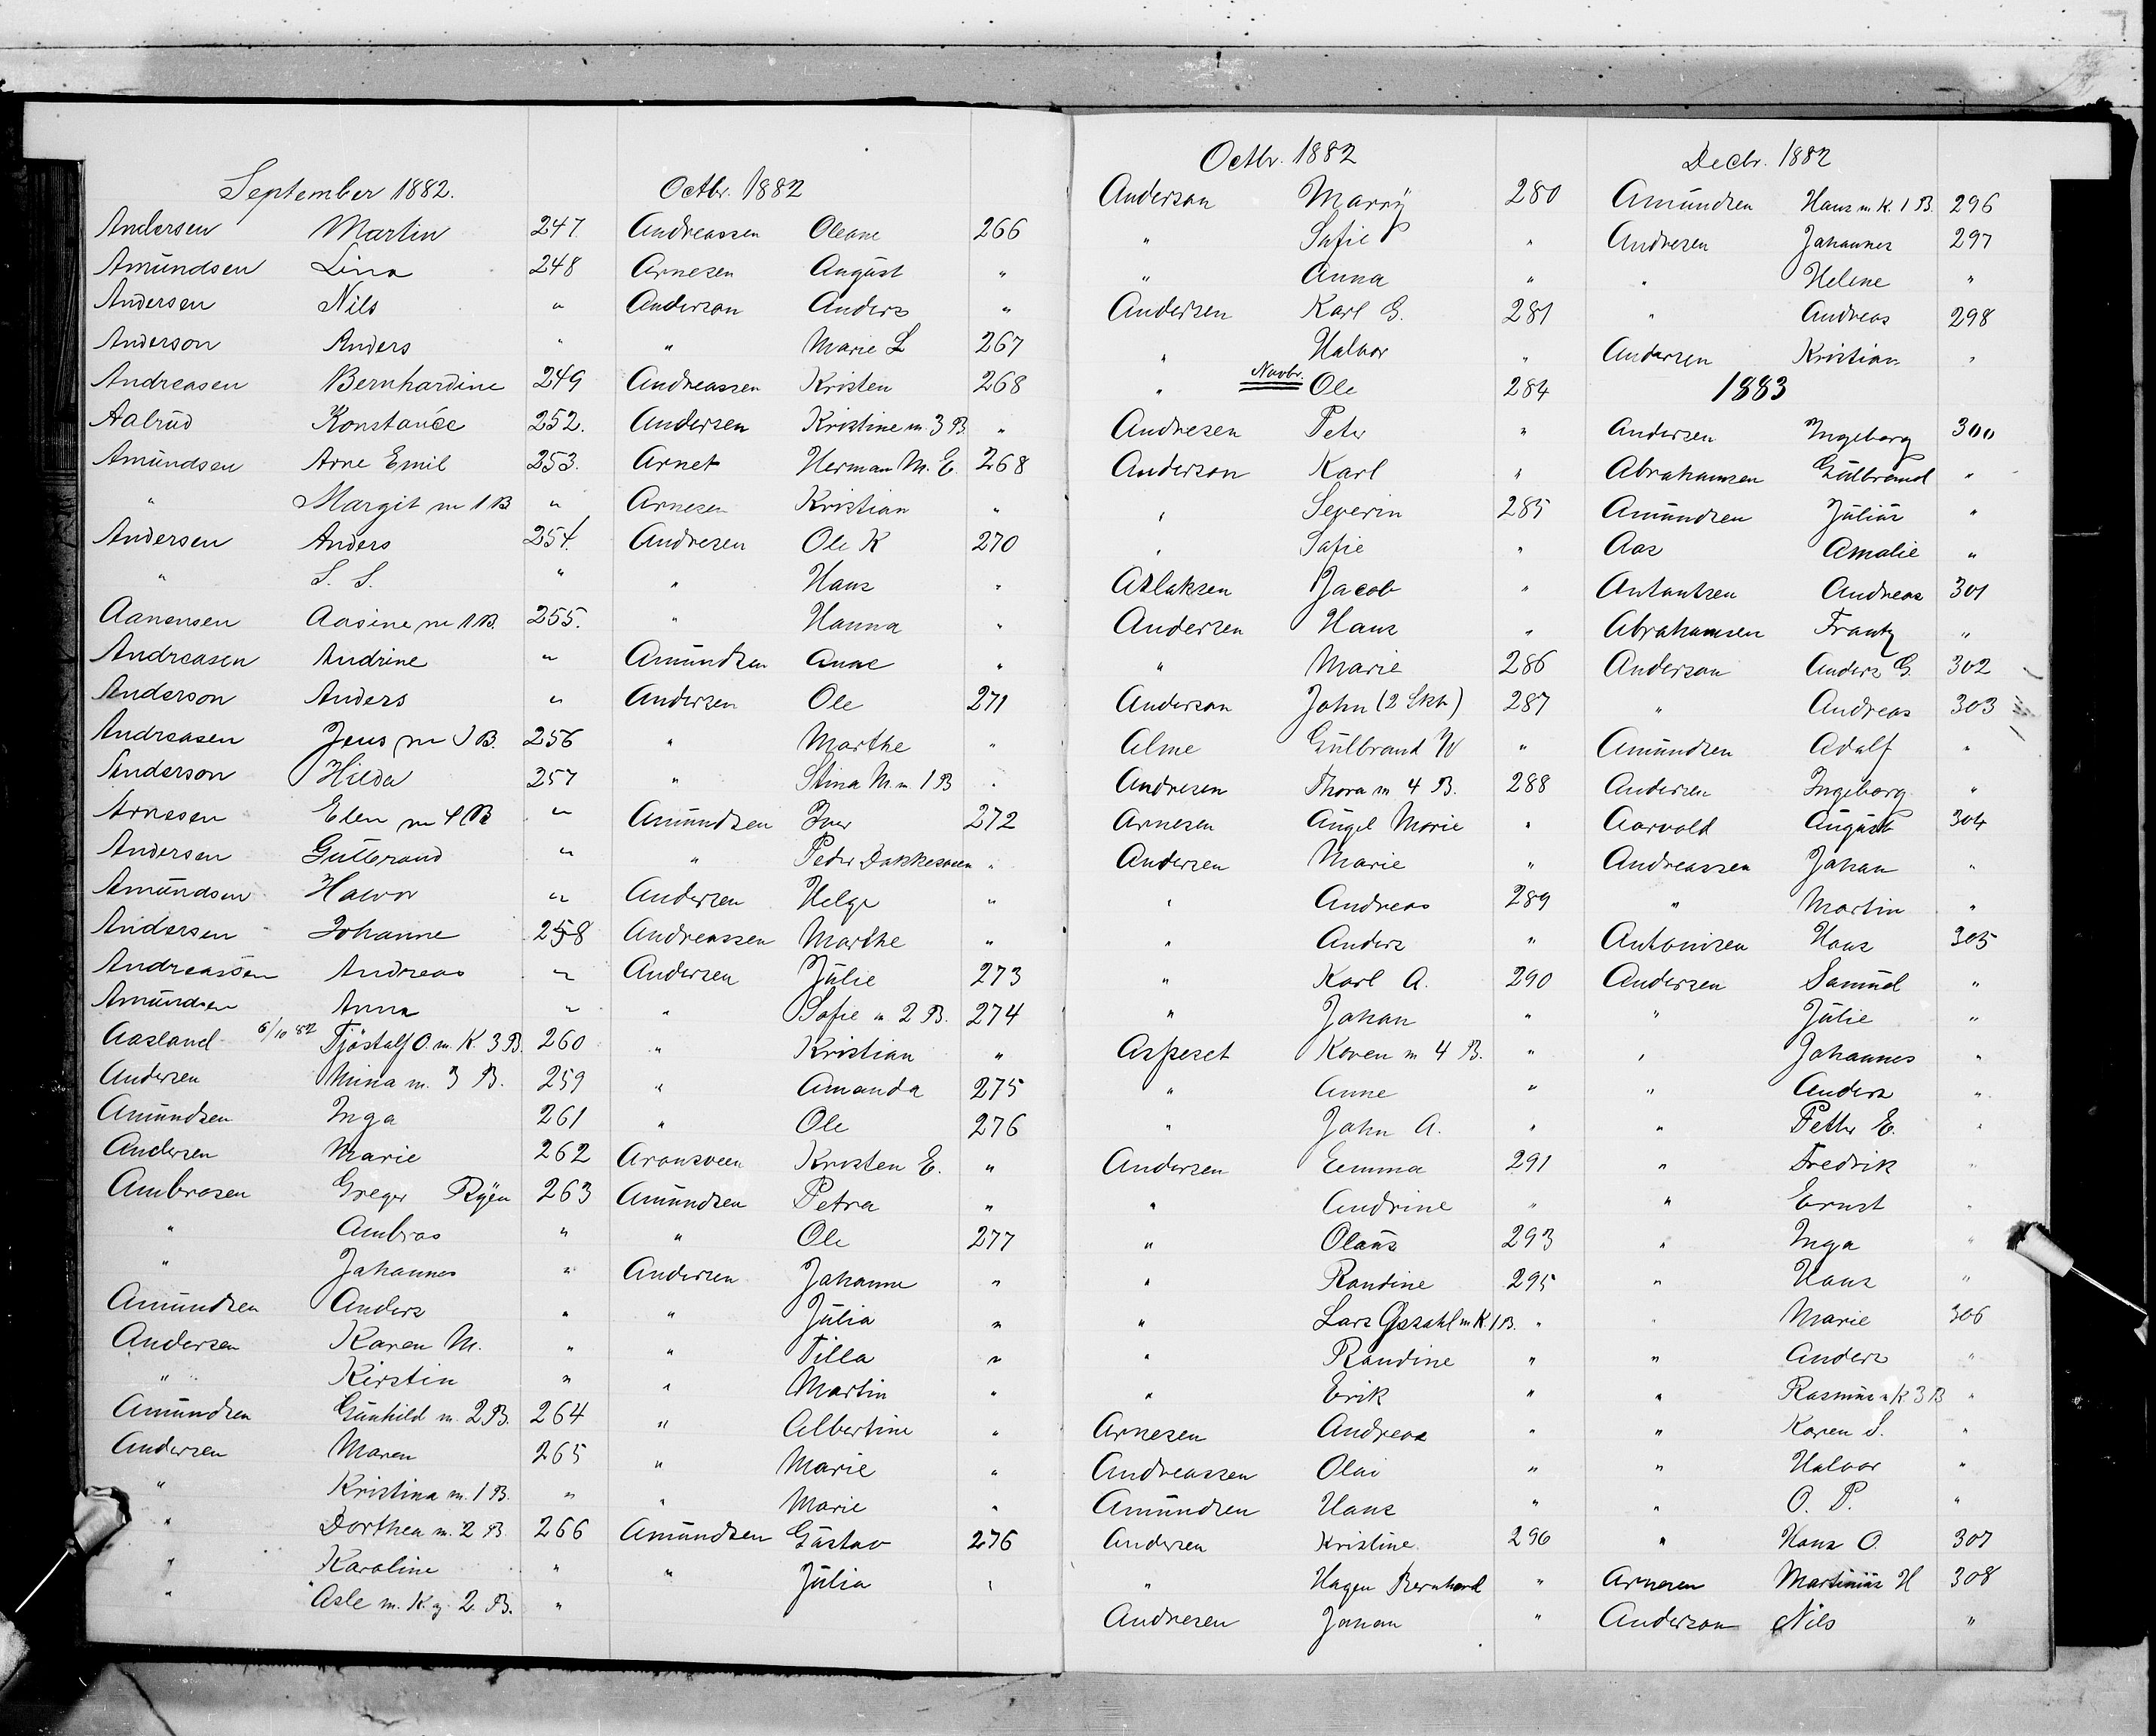 September 1882.
Andersen Martin 247.
Amundsen Lina 248
Andersen Nils "
Anderson Anders "
Andreasen Bernhardine 249
Aalrud Konstance 252.
Amundsen Arne Emil 253.
" Margit m 1 B "
Andersen Anders 254.
" S. S. "
Aanensen Aasine m 1 B. 255.
Andreasen Andrine "
Anderson Anders "
Andreasen Jens m 1 B. 256
Anderson Hilda 257
Arnesen Elen m 4 B "
Andersen Gulbrand "
Amundsen Halvor "
Andersen Johanne 258
Andreassen Andreas "
Amundsen Anna "
Aasland 6/10 82 Tjöstolf O. m. K 3 B. 260
Andersen Mina m. 3 B. 259
Amundsen Inga 261
Andersen Marie 262
Ambrosen Greger Ryen 263
" Ambros "
" Johannes "
Amundsen Anders "
Andersen Karen M. "
" Kirstin "
Amundsen Gunhild m. 2 B. 264
Andersen Maren 265
" Kristina m. 1 B. "
" Dorthea m. 2 B. 266
" Karoline "
" Asle m. K. g. 2 B. "
Octbr. 1882
Andreassen Oleane 266
Arnesen August "
Anderson Anders "
" Marie L 267
Andreassen Kristen 268
Andersen Kristine m. 3 B. "
Arnet Herman M. E. 268
Arnesen Kristian "
Andresen Ole K 270
" Hans "
" Hanna "
Amundsen Anne "
Andersen Ole 271
" Marthe "
" Stina M m 1 B "
Amundsen Iver 272
" Peder "
Andersen Helge "
Andreassen Marthe "
Andersen Julie 273
" Sofie m 2 B. 274
" Kristian "
" Amanda 275
" Ole 276
Aronsveen Kristen E. "
Amundsen Petra "
" Ole 277
Andersen Johanne "
" Julia "
" Tilla "
" Martin "
" Albertine "
" Marie "
" Marie "
Amundsen Gustav 276
" Julia "
Octbr. 1882
Anderson Marry 280
" Sofie "
" Anna "
Andersen Karl G. 281
" Halvor "
" Novbr. Ole 284
Andresen Peter "
Anderson Karl "
" Severin 285
" Sofie "
Aslaksen Jacob "
Andersen Hans "
" Marie 286
Anderson John (2 Skb) 287
Alme Gulbrand "
Andresen Thora m 4 B. 288
Arnesen Angel Marie "
Andersen Marie "
" Andreas 289
" Anders "
" Karl A. 290
" Johan "
Asperet Koren m 4 B. "
" Anne "
" John A. "
Andersen Emma 291
" Andrine "
" Olaus 293
" Randine 295
" Lars m K. 1 B. "
" Randine "
" Erik "
Arnesen Andreas "
Andreassen Olai "
Amundsen Hans "
Andersen Kristine 296
" Hagen Bernhard "
Andresen Johan "
Decbr. 1882
Amundsen Hans m. K. 1 B. 296
Andresen Johannes 297
" Helene "
" Andreas 298
Andersen Kristian "
1883
Andersen Ingeborg 300
Abrahamsen Gulbrand "
Amundsen Julius "
Aas Amalie "
Antontsen Andreas 301
Abrahamsen Frantz "
Anderson Anders G. 302
" Andreas 303
Amundsen Adolf "
Andersen Ingeborg "
Aarvold August 304
Andreassen Johan "
" Martin "
Antonisen Hans 305
Andersen Samuel "
" Julie "
" Johannes "
" Anders "
" Petter E. "
" Fredrik "
" Ernst "
" Inga "
" Hans "
" Marie 306
" Anders "
" Rasmus m K. 3 B "
" Karen S. "
" Halvor "
" O. P. "
" Hans O. 307
Arnesen Martinius H 308
Anderson Nils "